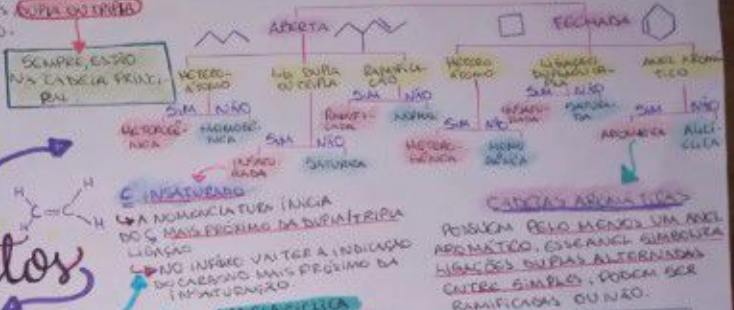 DUPLA OU TRIPLA
ABERTA
FECHADA
SEMPRE ESTÃO
NA CADEIA PRINCI-
PAL.
HETERO-
ÁTOMO
LIG DUPLA
OU TRIPLA
RAMIFICA-
ÇÃO
HETERO
ÁTOMO
LIGAÇÃO
ANEL AROMÁ-
TICO
SIM NÃO
HETEROGÊ-
NICA
HOMOGÊ-
NICA
SIM NÃO
INSATU-
RADA
SATURADA
SIM NÃO
RAMIFI-
CADA
NORMAL
SIM NÃO
HETERO-
GÊNICA
HOMO
GÊNICA
SIM NÃO
INSATU-
RADA
SATURA-
DA
SIM NÃO
AROMÁTICA
ALICÍ-
CLICA
H H
C=C
H H
tos
C INSATURADO
A NOMENCLATURA INICIA
DO C MAIS PRÓXIMO DA DUPLA/TRIPLA
LIGAÇÃO
NO INFIXO VAI TER A INDICAÇÃO
DO CARBONO MAIS PRÓXIMO DA
INSATURAÇÃO.
CADEIAS AROMÁTICAS
POSSUEM PELO MENOS UM ANEL
AROMÁTICO, ESSE ANEL SIMBOLIZA
LIGAÇÕES DUPLAS ALTERNADAS
ENTRE SIMPLES, PODEM SER
RAMIFICADAS OU NÃO.